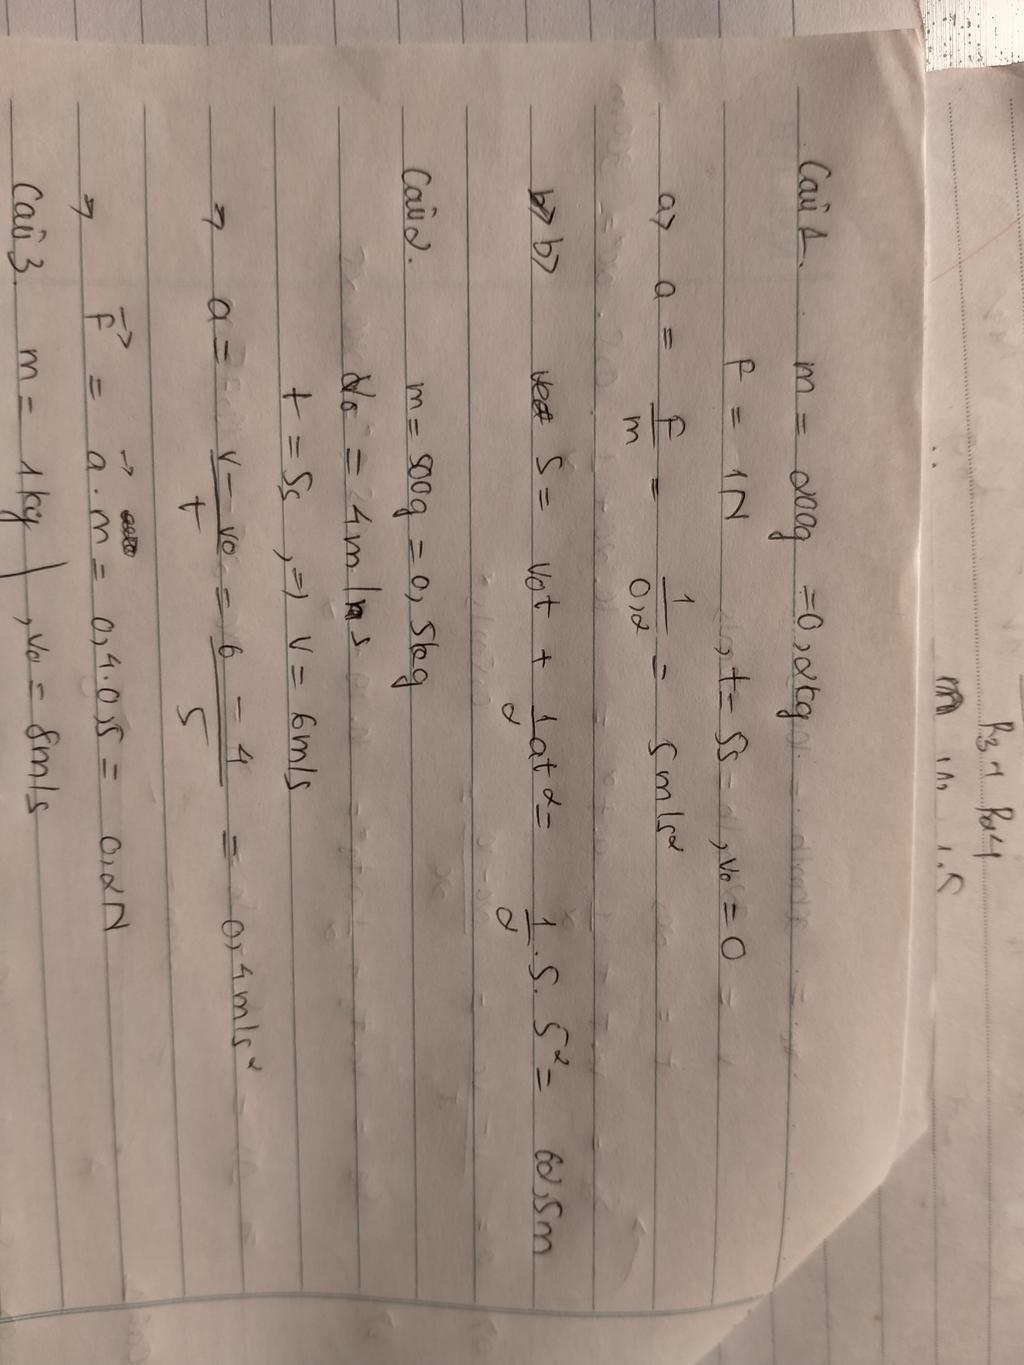 Câu 1. m = 200g = 0,2kg
F = 1N , t = 5s , v₀ = 0
a> a = F/m = 1/0,2 = 5m/s²
b> S = v₀t + 1/2 at² = 1/2 . 5 . 5² = 62,5m
Câu 2. m = 500g = 0,5kg
v₀ = 4m/s
t = 5s , => v = 6m/s
=> a = (v - v₀)/t = (6 - 4)/5 = 0,4m/s²
=> F⃗ = a⃗ . m = 0,4.0,5 = 0,2N
Câu 3. m = 1kg , v₀ = 8m/s